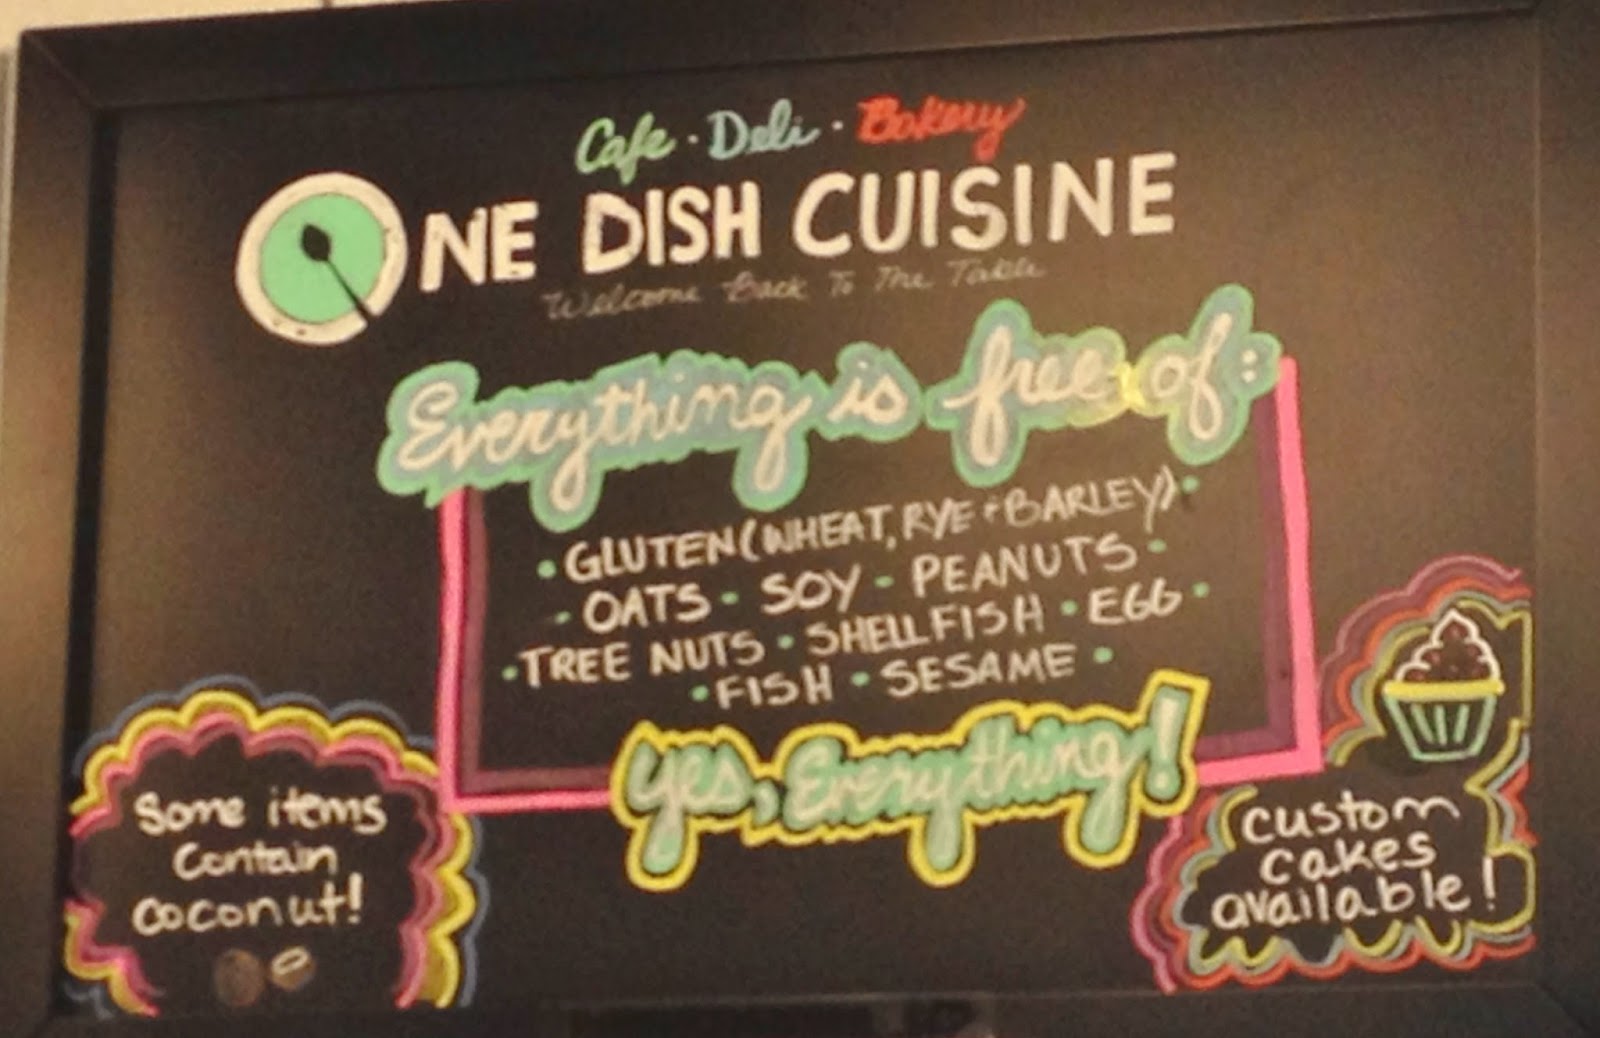 Cafe · Deli · Bakery
ONE DISH CUISINE
Welcome Back To The Table
Everything is free of:
· GLUTEN (WHEAT, RYE + BARLEY) ·
· OATS · SOY · PEANUTS ·
· TREE NUTS · SHELLFISH · EGG ·
· FISH · SESAME ·
Yes, Everything!
Some items
contain
coconut!
custom
cakes
available!